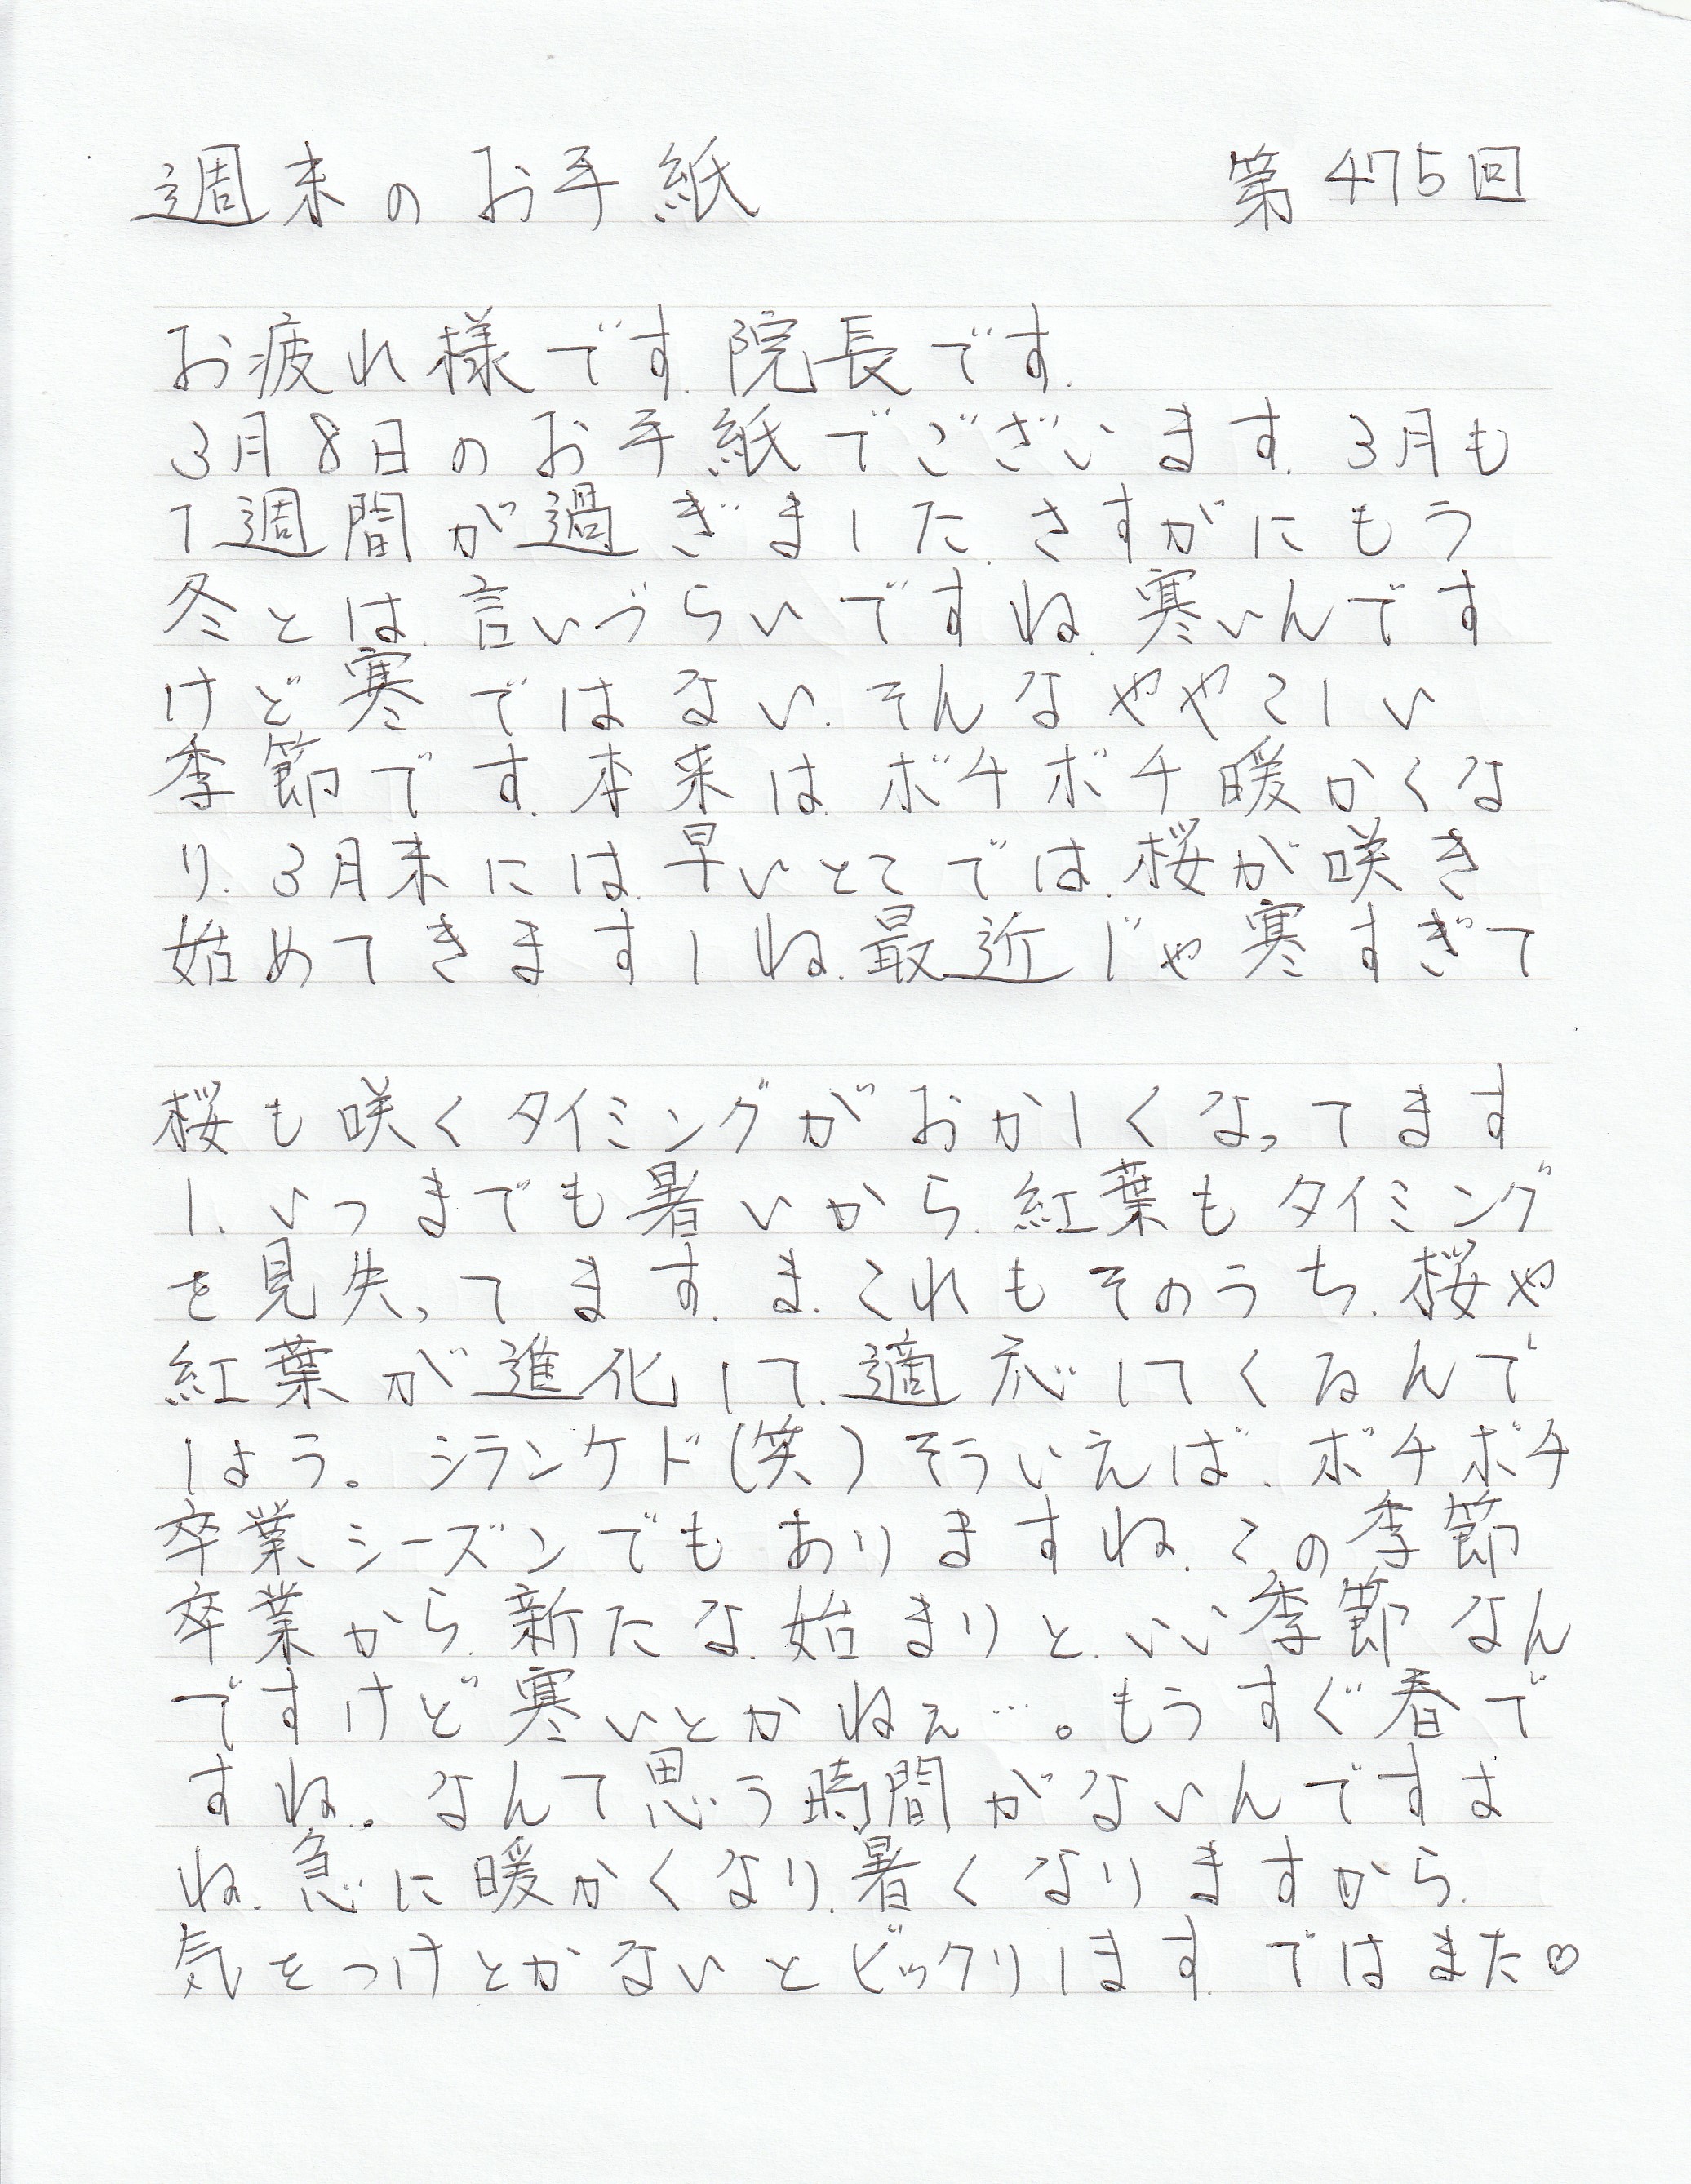 週末のお手紙 第475回
お疲れ様です.院長です.
3月8日のお手紙でございます.3月も
1週間が過ぎました.さすがにもう
冬とは.言いづらいですね.寒いんです
けど寒ではない.そんなややこしい
季節です.本来は.ボチボチ暖かくな
り.3月末には.早いとこでは.桜が咲き
始めてきますしね.最近じゃ寒すぎて
桜も咲くタイミングがおかしくなってます
し.いつまでも暑いから.紅葉もタイミング
を見失ってます.ま.これもそのうち.桜や
紅葉が進化して.適応してくるんで
しょう。シランケド(笑)そういえば.ボチボチ
卒業シーズンでもありますね.この季節
卒業から.新たな.始まりと.いい季節なん
ですけど寒いとかねぇ…。もうすぐ春で
すね。なんて思う時間がないんですよ
ね.急に暖かくなり.暑くなりますから.
気をつけとかないとビックリします.ではまた♡